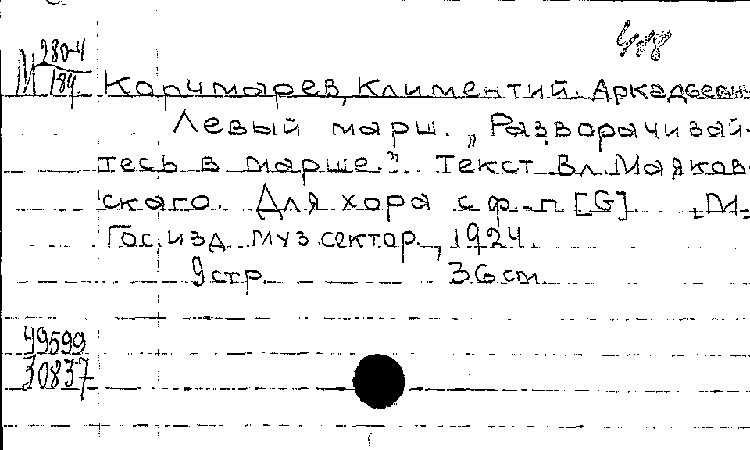 М 280-4
184
Корчмарев, Климентий Аркадьевич
Левый марш. „Разворачивай-
тесь в марше." Текст Вл. Маяков-
ского. Для хора с ф-п [G]. М.,
Гос. изд. муз сектор, 1924.
9 стр. 36 cm.
49599
30837